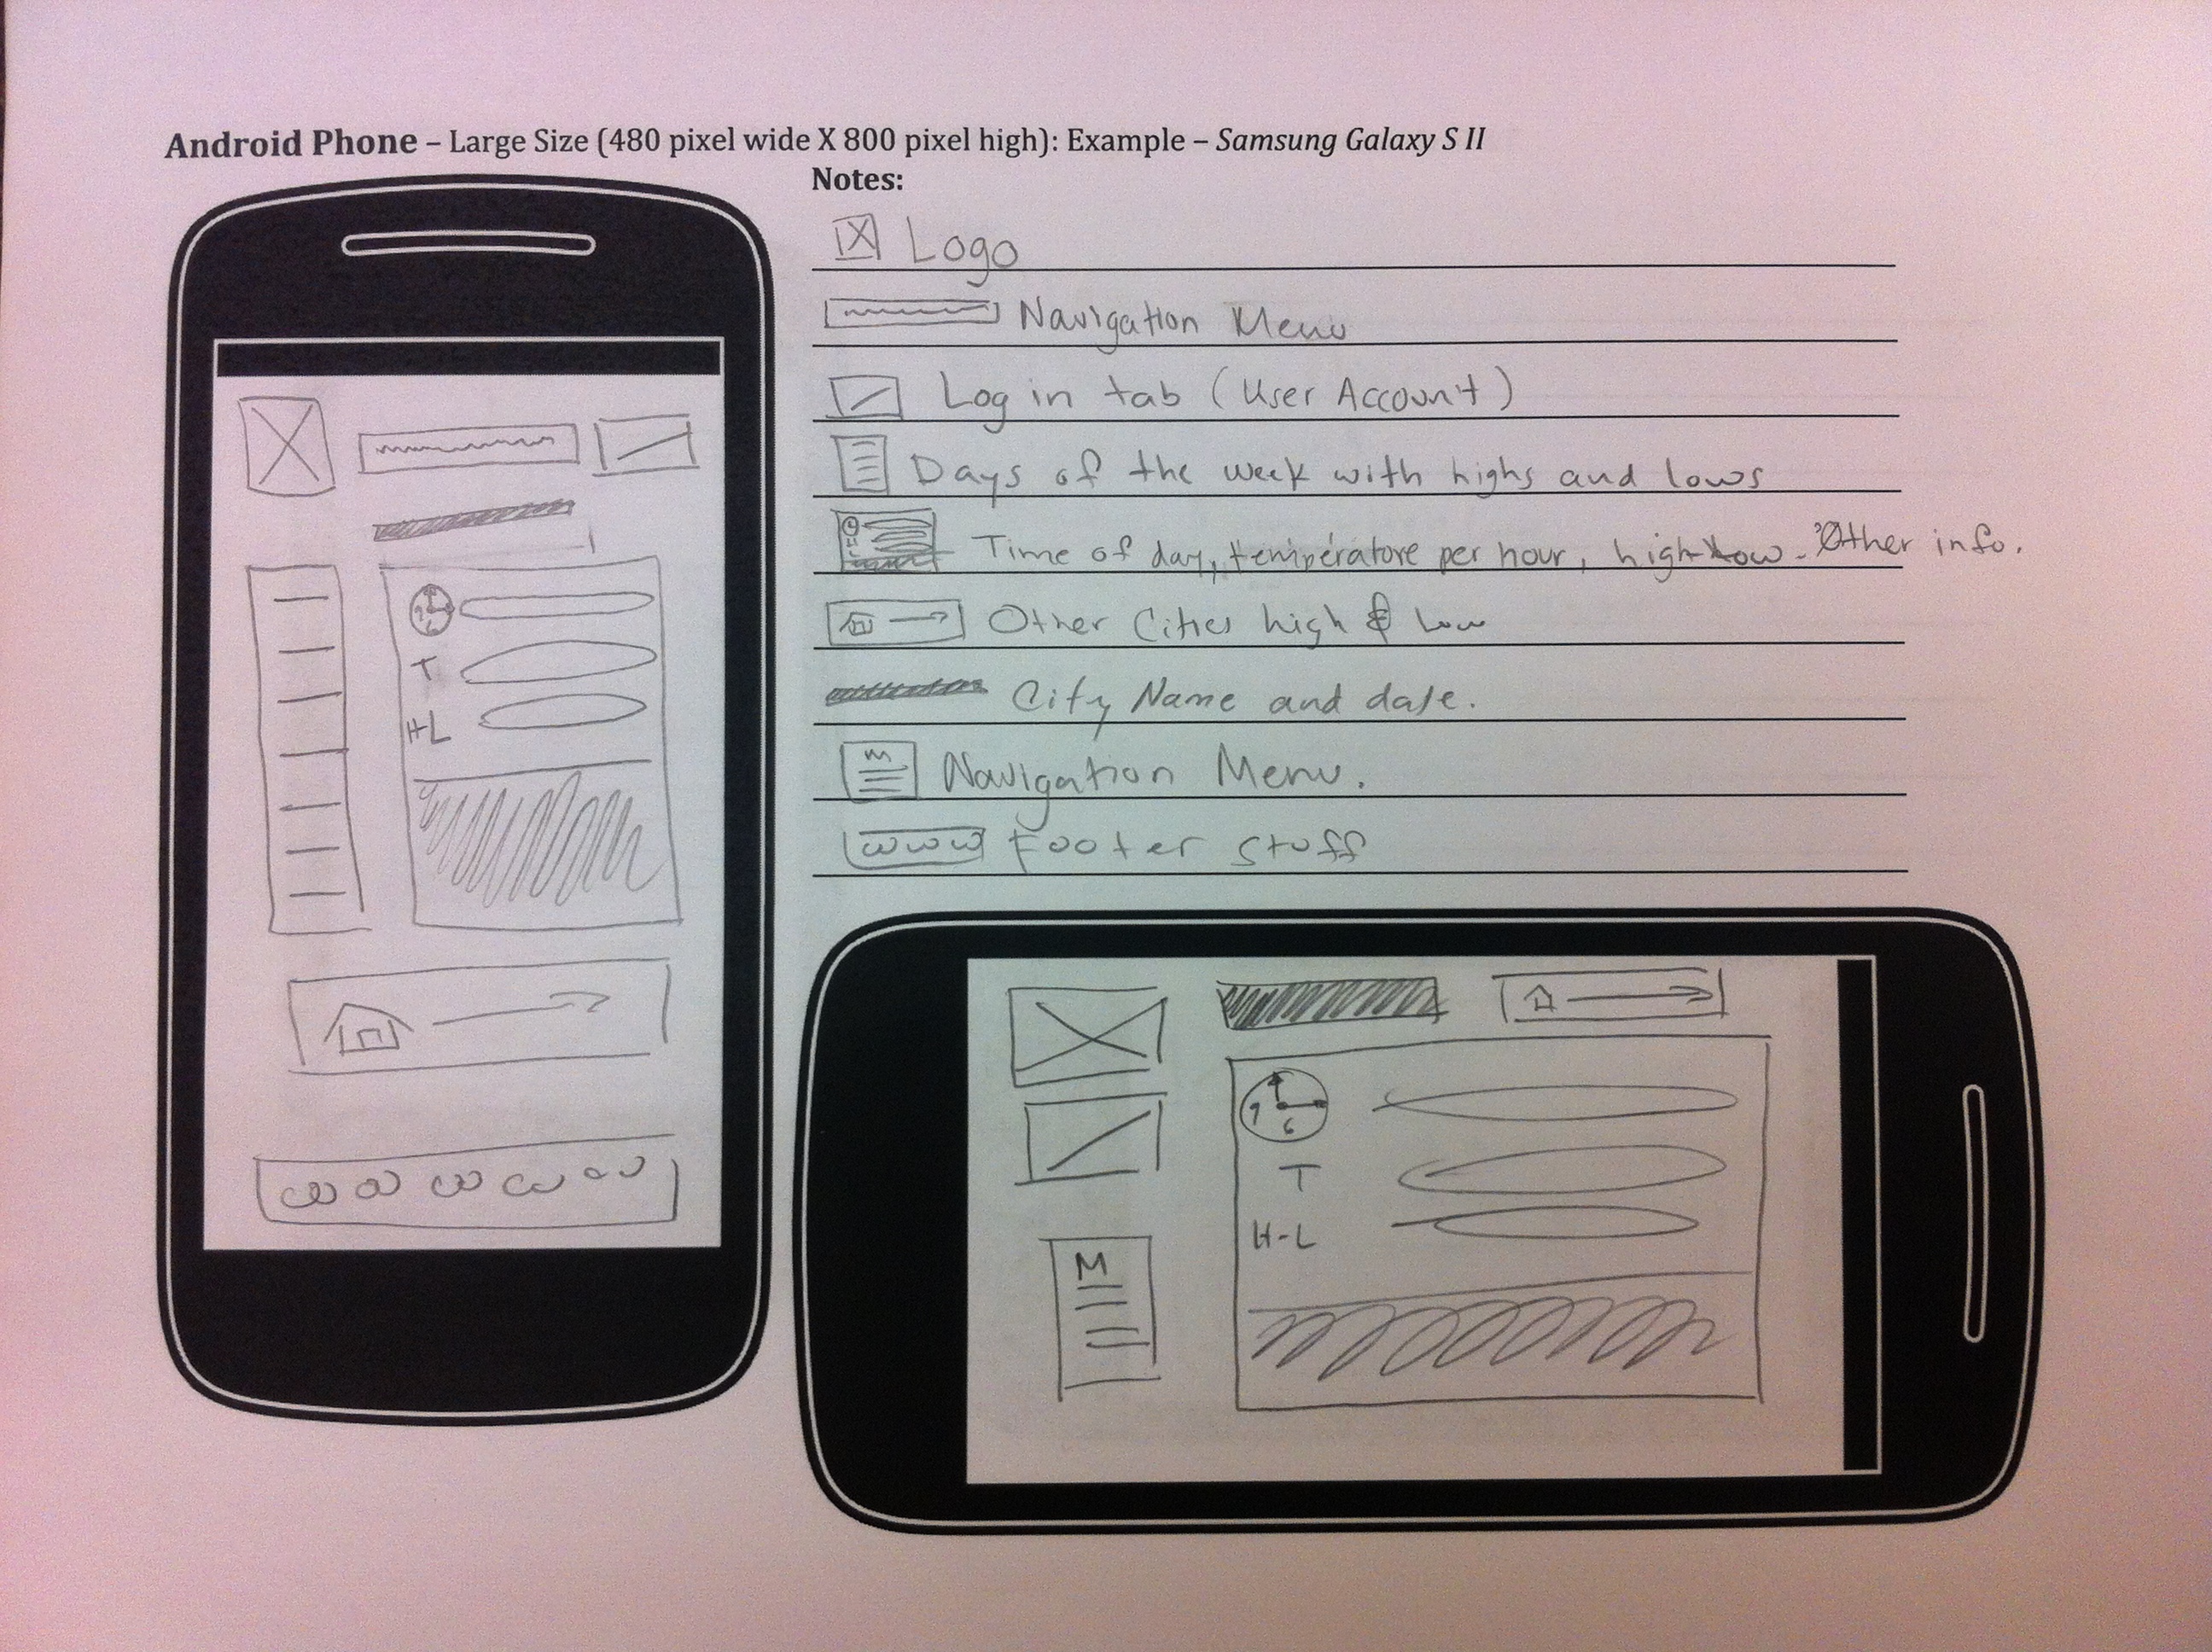 Android Phone – Large Size (480 pixel wide X 800 pixel high): Example – Samsung Galaxy S II
Notes:
Logo
Navigation Menu
Log in tab (User Account)
Days of the week with highs and lows
Time of day, temperature per hour, high-low. Other info.
Other Cities high & low
City Name and date.
M Navigation Menu.
Footer Stuff
T
H-L
T
H-L
M